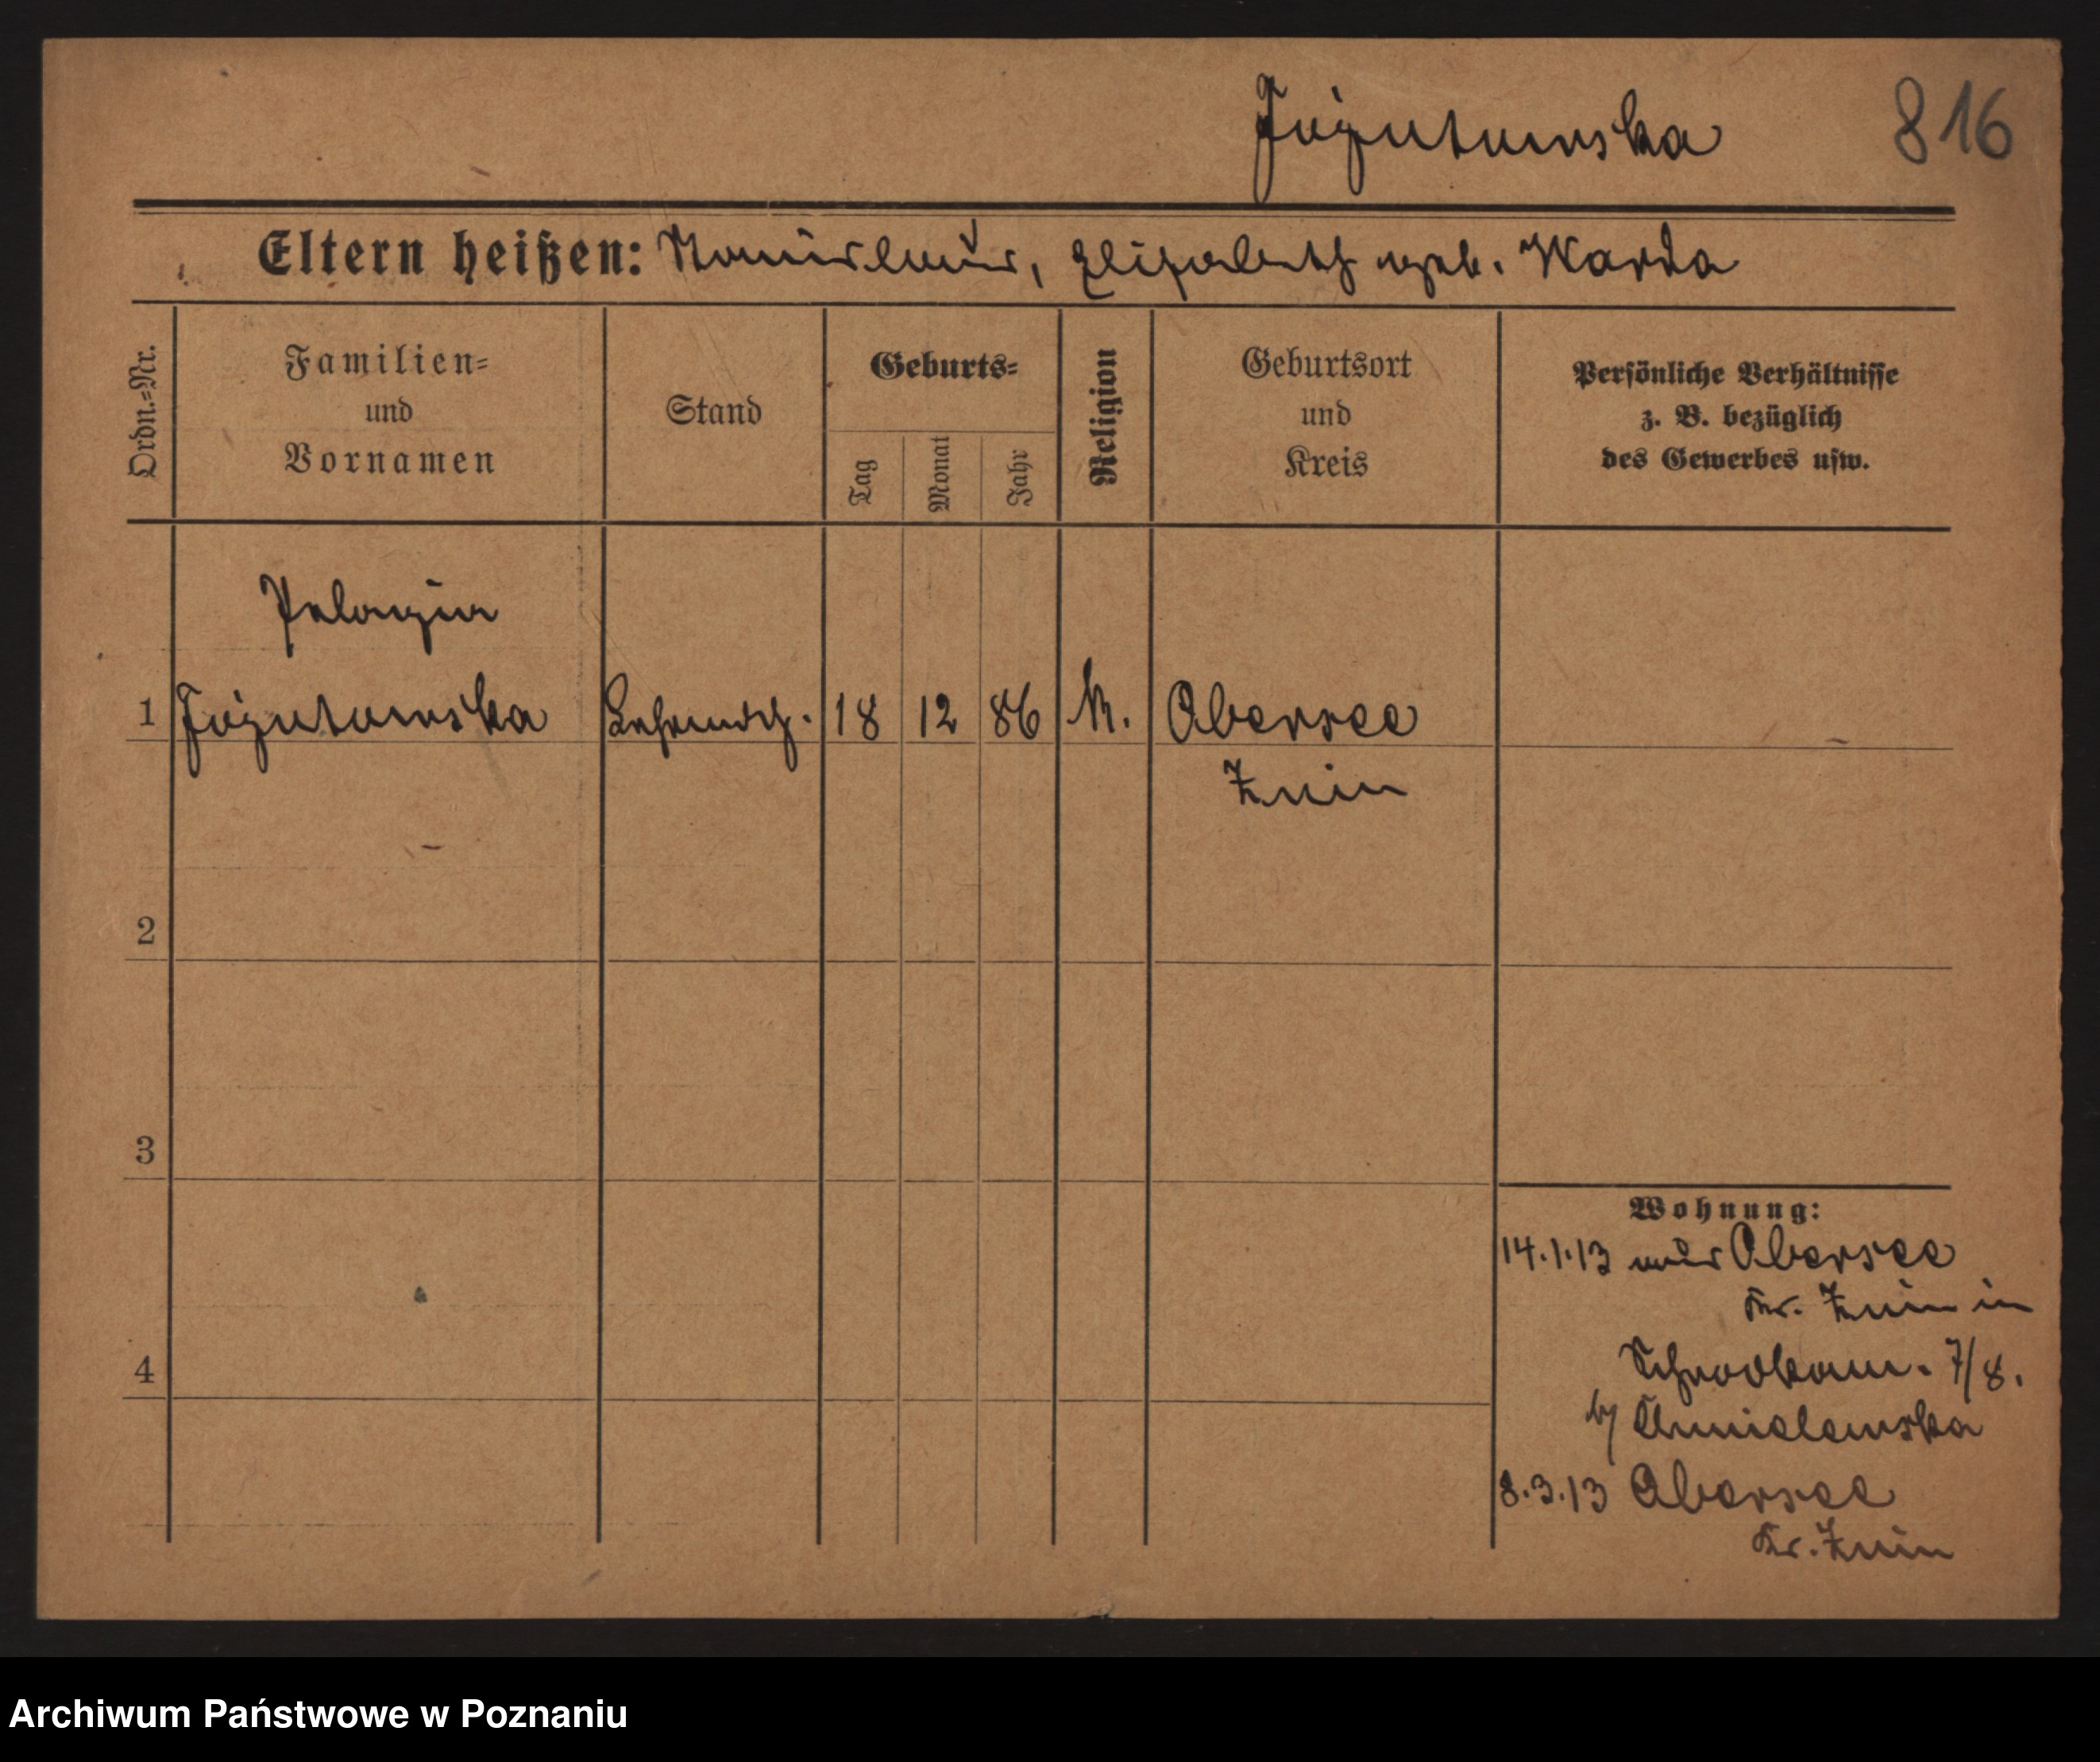 Józefowska 816
Eltern heißen: Stanislaus, Elisabeth geb. Warda
Ordn.=Nr.
Familien=
und
Vornamen
Stand
Geburts=
Tag
Monat
Jahr
Religion
Geburtsort
und
Kreis
Persönliche Verhältnisse
z. B. bezüglich
des Gewerbes usw.
Pelagia
1 18 12 86 K. Obersee
Znin
2
3
4
Wohnung:
14.1.13 aus Obersee
Kr. Znin in
7/8.
b/ Chmielewska
8.3.13 Obersee
Kr. Znin
Archiwum Państwowe w Poznaniu